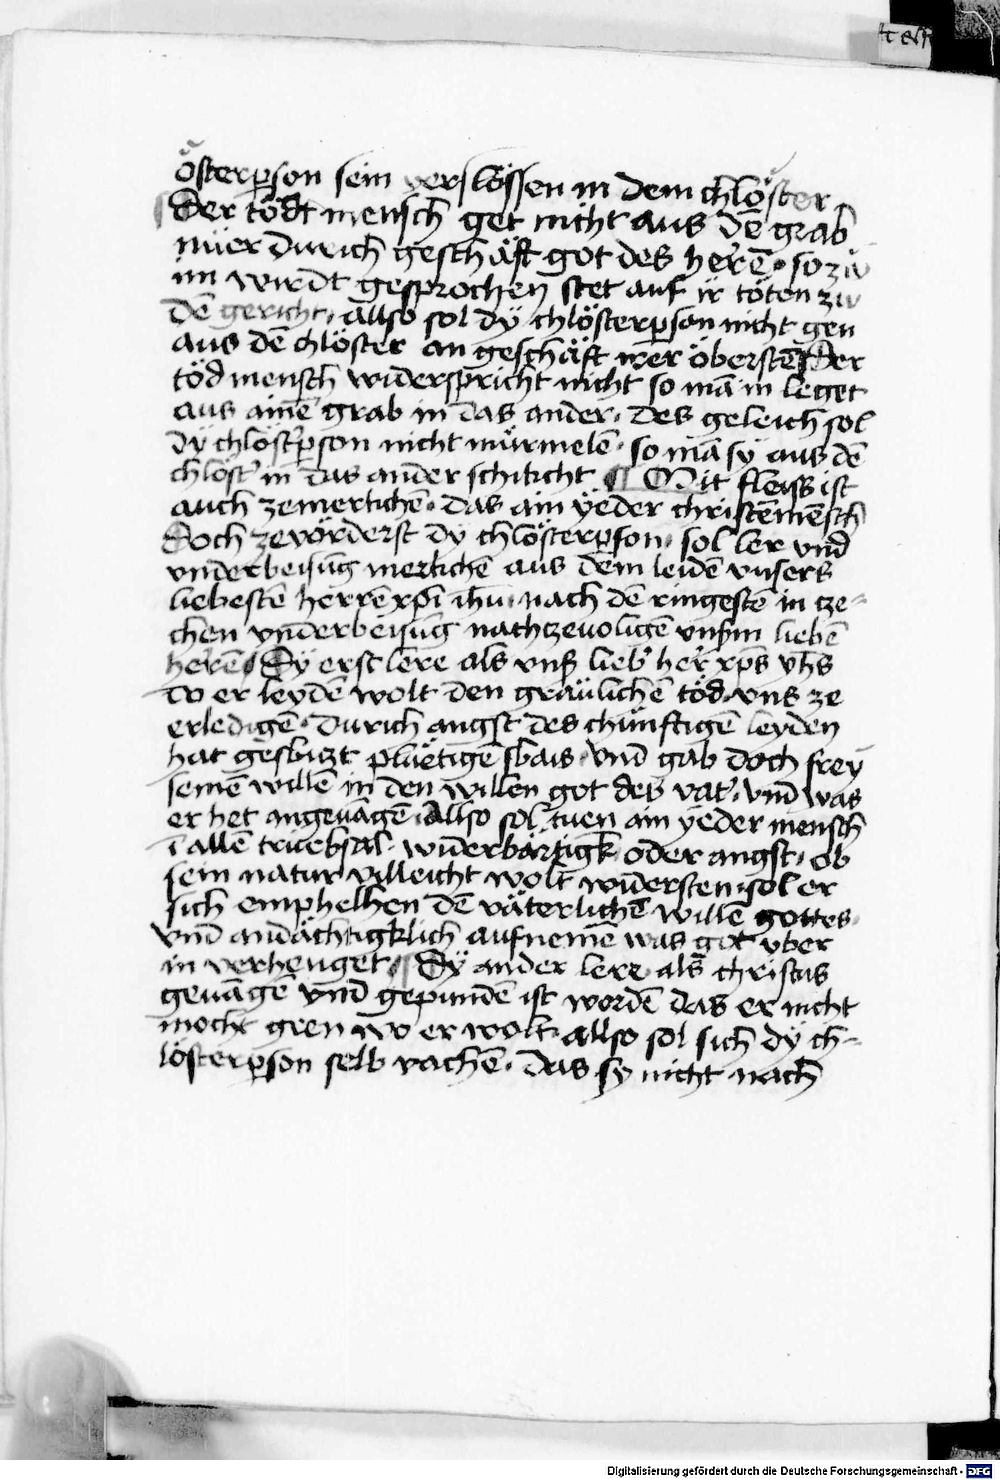 österꝑson sein verslössen in dem chlöster
Der tödt mensch get nicht aus dē grab
nüer durich geschäft got des herrē · so zw
im wirdt gesprochen stet auf ir töten zw
dē gericht · allso sol dÿ chlösterꝑson nicht gen
aus dē chlöster an geschäft irer öberstē Der
töd mensch widerspricht nicht so mā in leget
aus ainē grab in das ander · des geleich sol
dÿ chlöstꝰꝑson nicht mürmelē · so mā sÿ aus dē
chlöstꝰ in das ander schikcht ¶ Mit fleiss ist
auch zemerkchē · das ain yeder christēmēsch
Doch zevörderst dÿ chlösterꝑson · sol ler vnd
vnderbeisūg merkchē aus dem leidē vnsers
liebestē herrē xp̄i ih̄u · nach dē ringestē in cze-
chen vnderbeisūg nachczevolgē vnsm̄ liebē
herrē ¶ Dÿ erst lere als vnsꝰ liebꝰ herr xp̄s yh̄s
do er leydē wolt den gräulichē töd · vns ze
erledigē · durich angst des chünftigē leyden
hat gesbiczt pluetigē sbais · vnd gab doch frey
seinē willē in den willen got des vatꝰ · vnd was
er het angeuāgē · Allso sol tuen ain yeder mensch
ī allē trüebsal · widerbärtigk oder angst · ob
sein natur villeicht wolt widersten · sol er
sich emphelhen dē väterlichē willē gottes ·
vnd andächtigklich aufnemē was got vber
in verhenget ¶ Dÿ ander lere als christus
geuāgē vnd gepundē ist wordē das er nicht
mocht gen wo er wolt · allso sol sich dÿ ch-
lösterꝑson selb vachē · das sy nicht nach
Digitalisierung gefördert durch die Deutsche Forschungsgemeinschaft - DFG